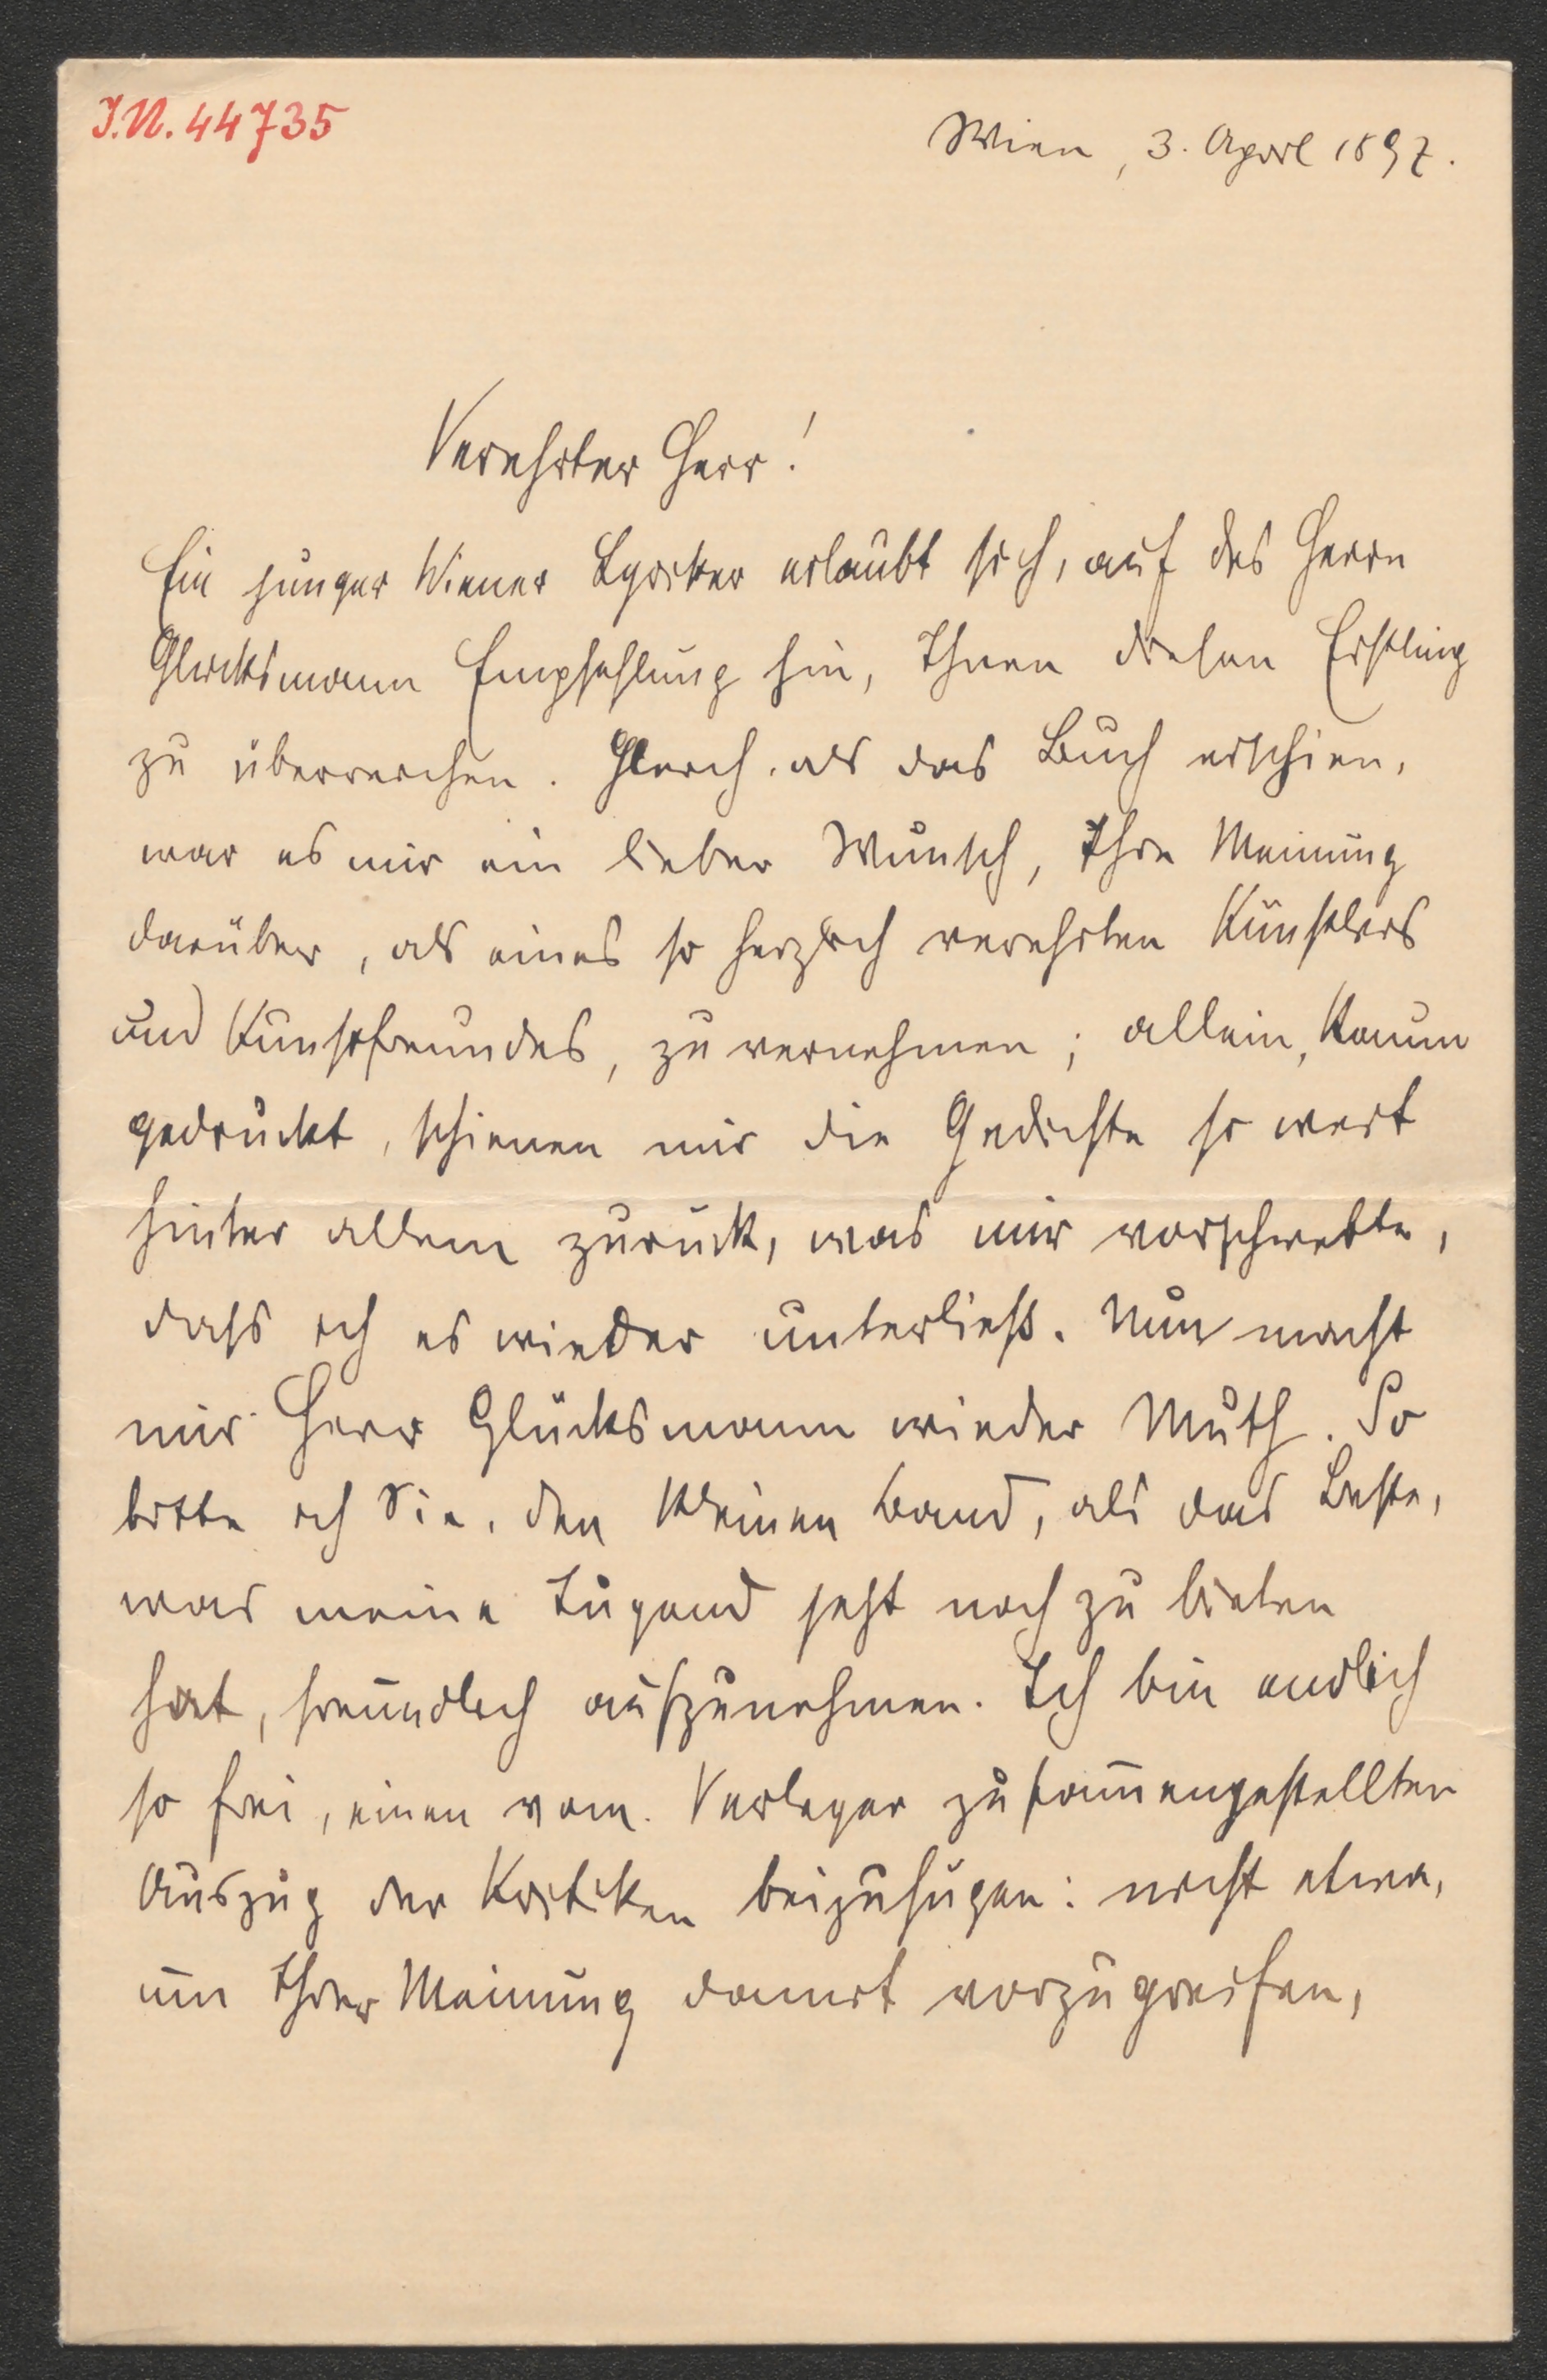 I.N. 44735
Wien, 3. April 1897.
Verehrter Herr!
Ein junger Wiener Lyriker erlaubt sich, auf des Herrn
Glücksmann Empfehlung hin, Ihnen diesen Erstling
zu überreichen. Gleich, als das Buch erschien,
war es mir ein lieber Wunsch, Ihre Meinung
darüber, als eines so herzlich verehrten Künstlers
und Kunstfreundes, zu vernehmen; allein, kaum
gedruckt, schienen mir die Gedichte so weit
hinter allem zurück, was mir vorschwebte,
dass ich es wieder unterließ. Nun macht
mir Herr Glücksmann wieder Muth. So
bitte ich Sie, den kleinen Band, als das Beste,
was meine Jugend jetzt noch zu bieten
hat, freundlich aufzunehmen. Ich bin endlich
so frei, einen vom Verleger zusam̅engestellten
Auszug der Kritiken beizufügen: nicht etwa,
um Ihrer Meinung damit vorzugreifen,